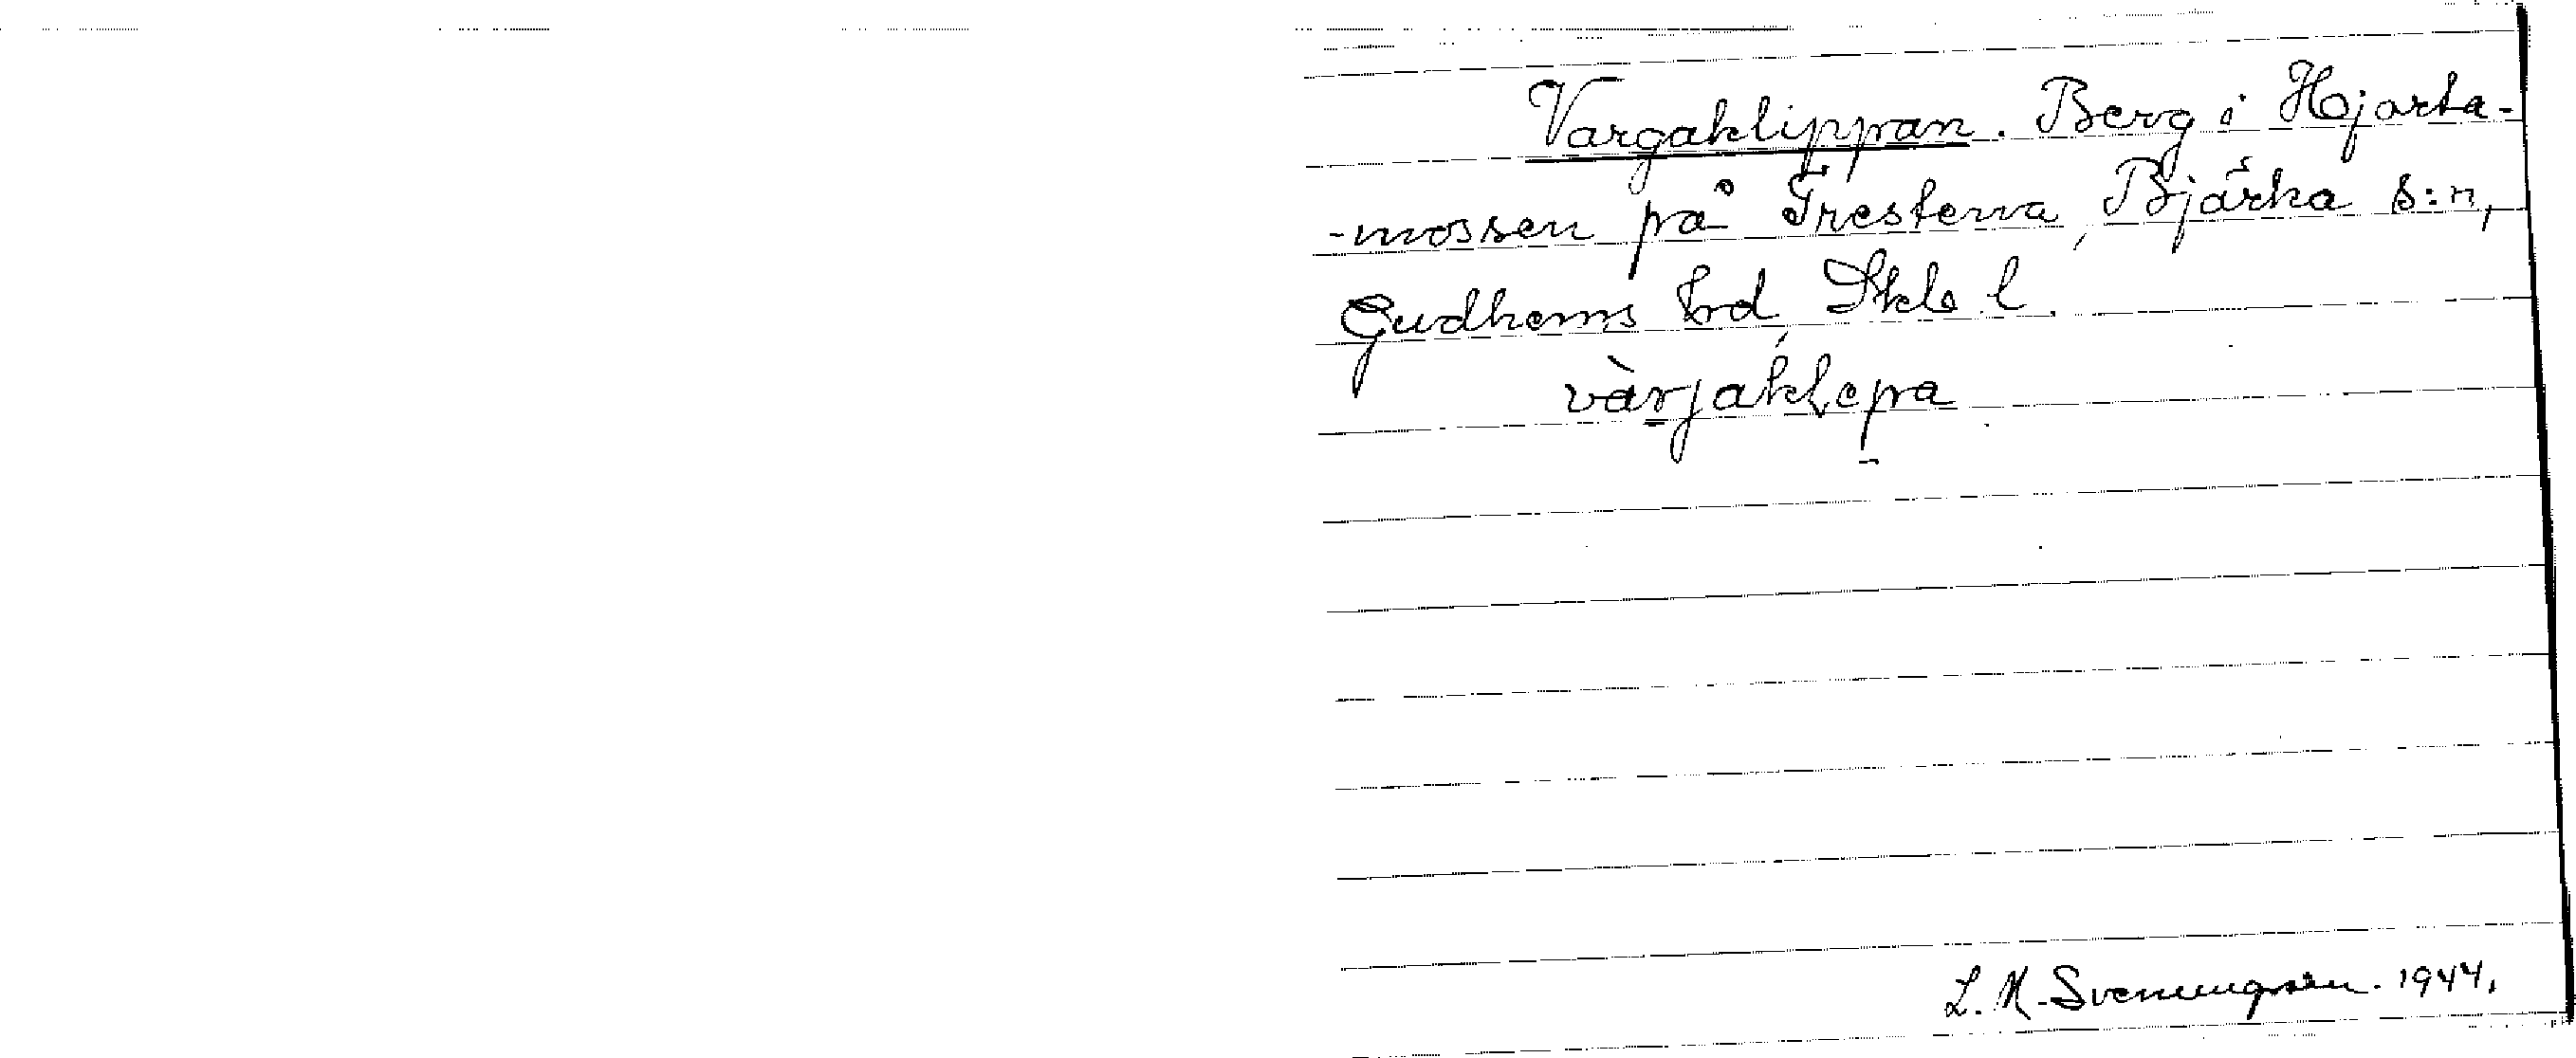 Vargaklippan. Berg i Hjorta-
-mossen på Trestena, Bjärka s:n,
Gudhems hrd, Skbs l.
vàrjaklepa
L. M. Svenungsson. 1944.